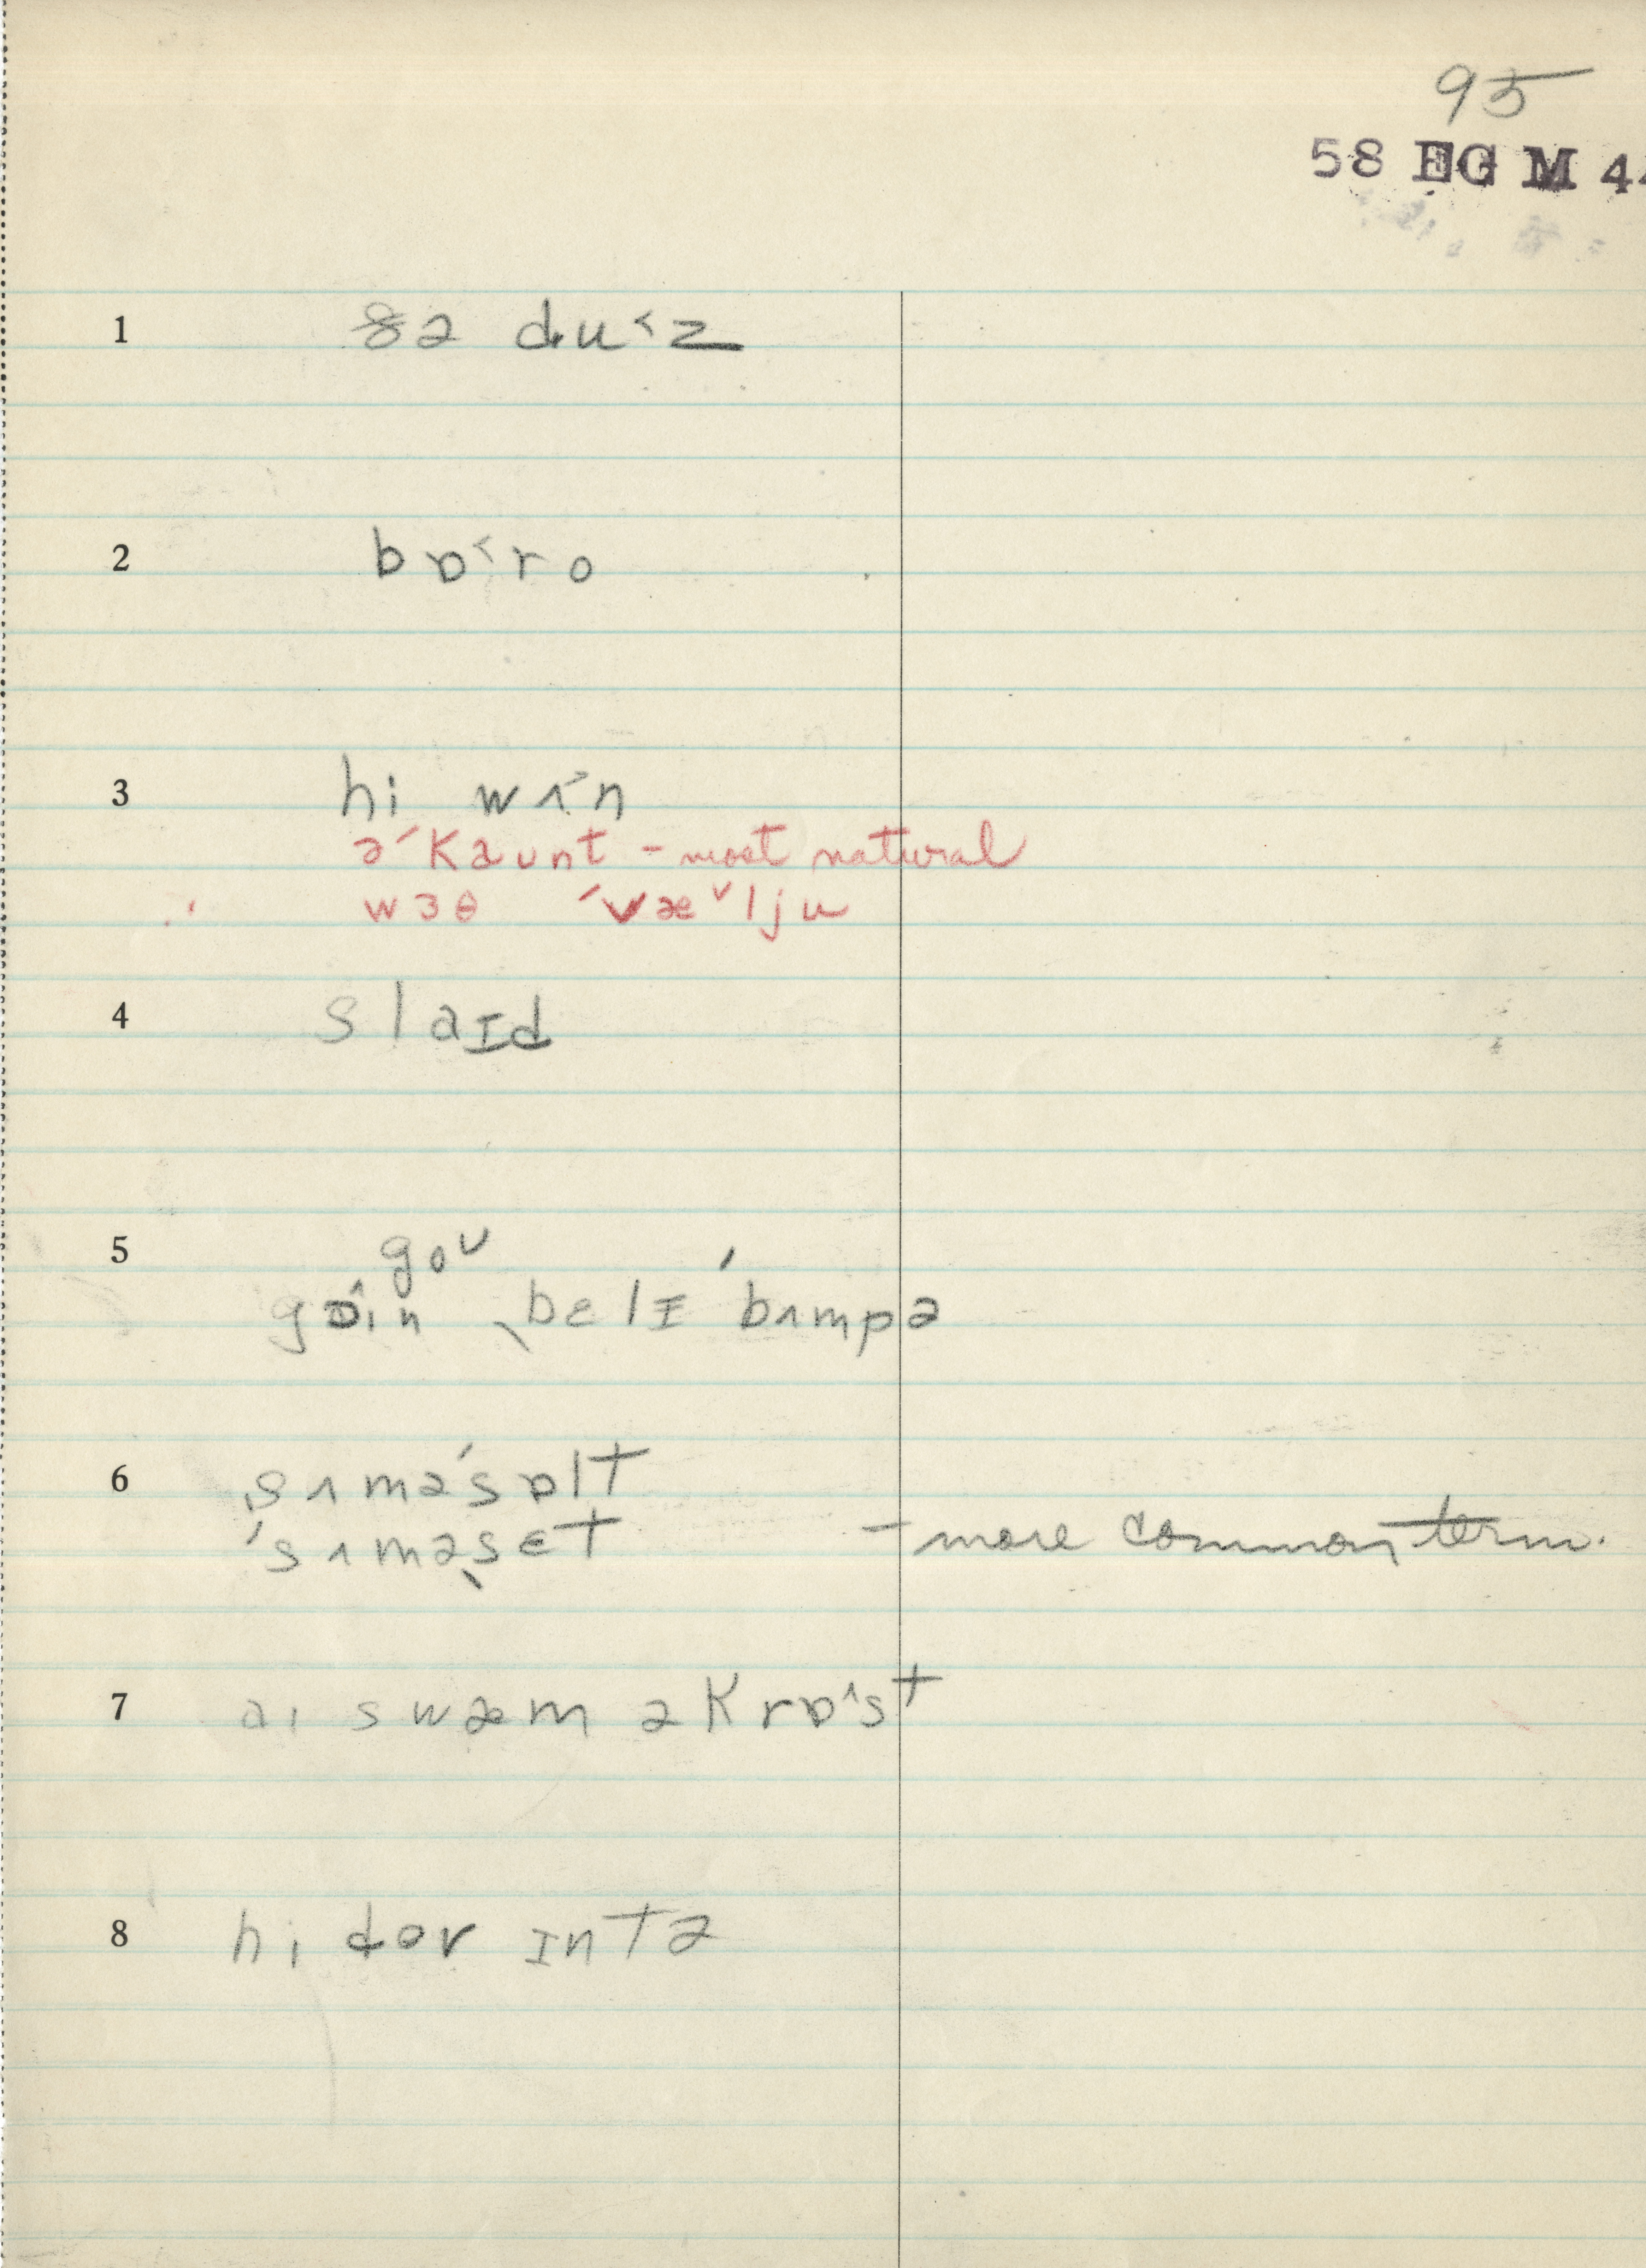 95
58 EG M 44
1 ðə du˂z
2 bɒ˂ro
3 hi wʌ˃n
əˊkaunt - most natural
wɜθ ˊvæ˅lju
4 slaɪd
5 goʊ
gɒ˄in ˎbɛlɪ ˊbʌmpə
6 ˎsʌməˊsɒlt
ˊsʌməˎsɛt - more common term.
7 ai swæm əkrɒ˄st
8 hi dov ɪntə